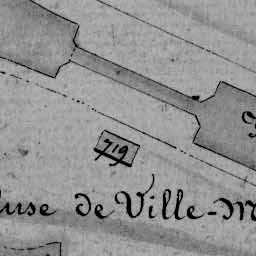 719
luse de Ville-M